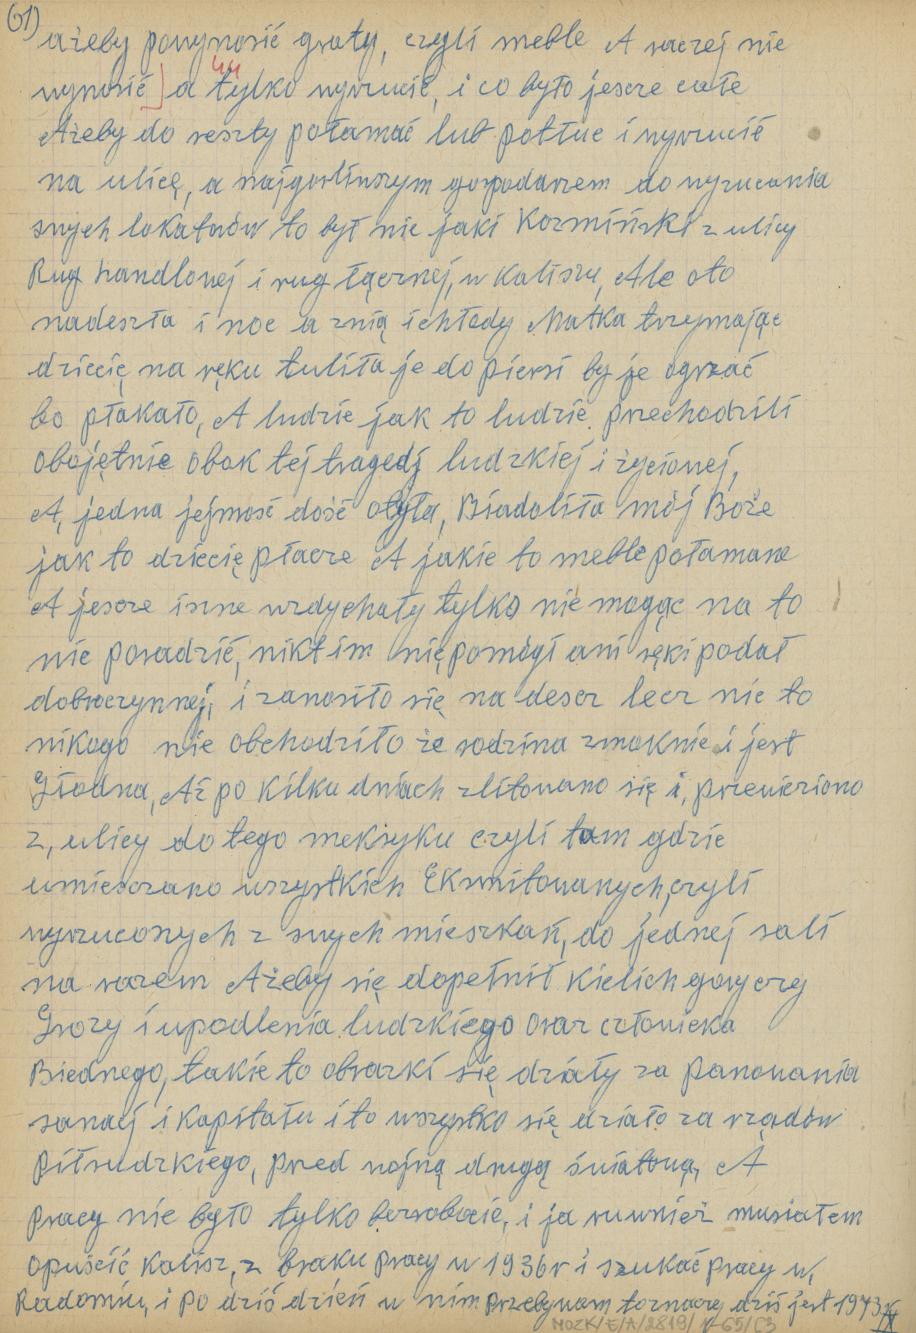 61)
ażeby powynosić graty, czyli meble A raczej nie
wynosić] a tylko wyrzucić, i co było jesce całe
Ażeby do reszty połamać lub potłuc i wyrzucić
na ulicę, a najgorliwszym gospodarzem do wyrzucania
swych lokatorów to był nie jaki Kozmiński z ulicy
Rug handlowej i rug łącznej, w Kaliszu, Ale oto
nadeszła i noc a znią ichłody Matka trzymając
dziecię na ręku tuliła je do piersi by je ogrzać
bo płakało, A ludzie jak to ludzie przechodzili
obojętnie obok tej tragedj ludzkiej i życiowej,
A, jedna jejmość dość otyła, Biadoliła mój Boże
jak to dziecię płacze A jakie to meble połamane
A jescze inne wzdychały tylko nie mogąc na to
nic poradzić, nikt im nie pomógł ani ręki podał
dobroczynnej, i zanosiło się na descz lecz nie to
nikogo nie obchodziło że rodzina zmoknie i jest
Głodna, Aż po kilku dniach zlitowano się i, przewieziono
z, ulicy do tego meksyku czyli tam gdzie
umiesczano wszystkich Eksmitowanych, czyli
wyrzuconych z swych mieszkań, do jednej sali
na razem Ażeby się dopełnił Kielich goryczy
Grozy i upodlenia ludzkiego oraz człowieka
Biednego, takie to obrazki się działy za panowania
sanacj i Kapitału i to wszystko się działo za rządów
piłsudzkiego, pred wojną drugą światową, A
pracy nie było tylko bezrobocie, i ja ruwnież musiałem
opuścić Kalisz, z braku pracy w 1936r i szukać pracy w,
Radomiu, i po dziś dzień w nim przebywam to znaczy dziś jest 1973 IX
MOZK/E/A/2819/